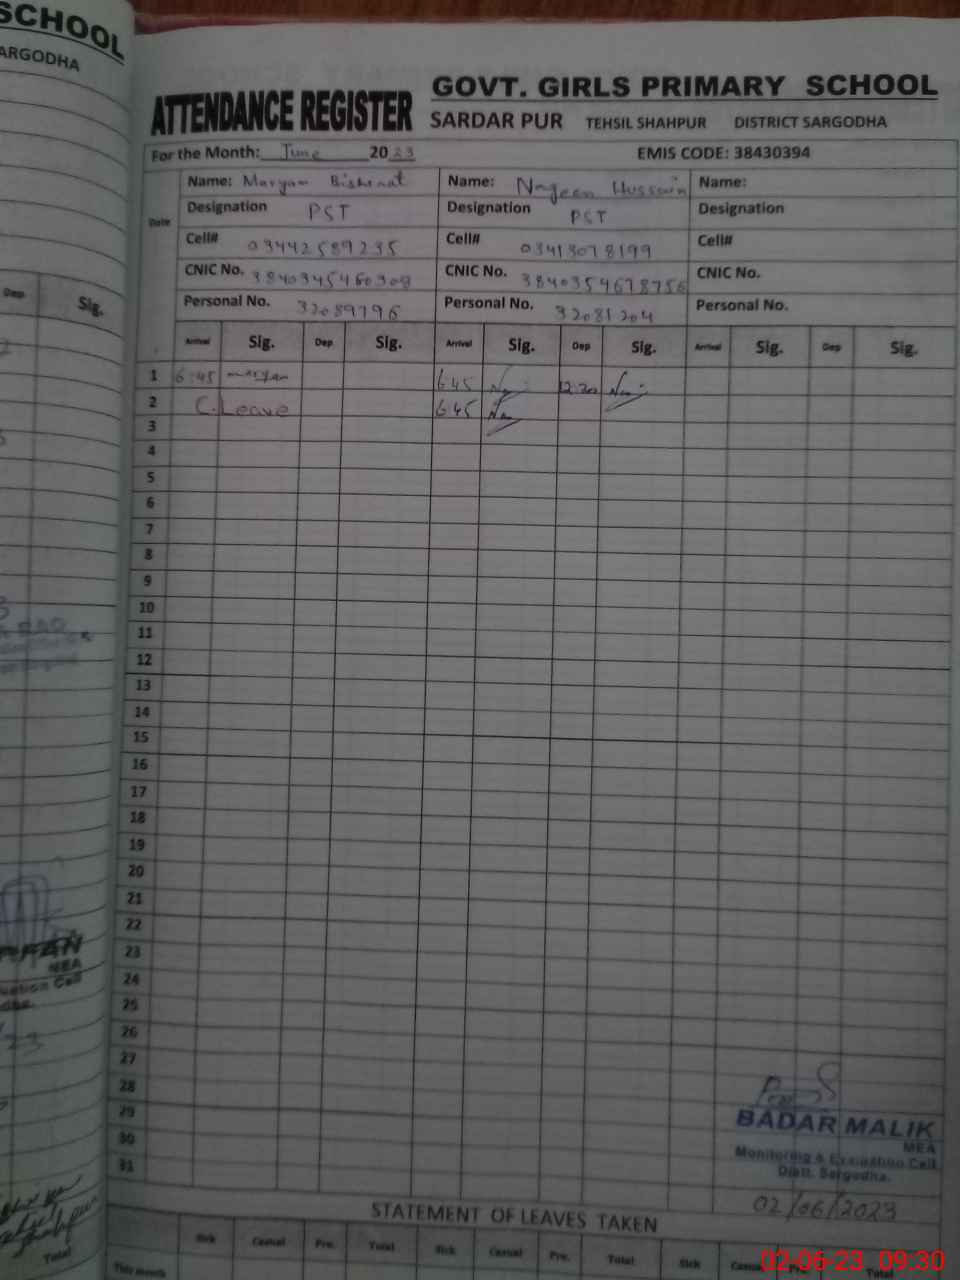 SCHOOL
SARGODHA
GOVT. GIRLS PRIMARY SCHOOL
ATTENDANCE REGISTER
SARDAR PUR TEHSIL SHAHPUR DISTRICT SARGODHA
For the Month: June 2023 EMIS CODE: 38430394
Date
Name: Maryam Name: Hussain Name:
Designation PST Designation PST Designation
Cell# 03442589235 Cell# 03413078199 Cell#
CNIC No. 3840345460308 CNIC No. 3840354678756 CNIC No.
Personal No. 32089796 Personal No. 32081204 Personal No.
Arrival Sig. Dep Sig. Arrival Sig. Dep Sig. Arrival Sig. Dep Sig.
1 6:45 maryam 6:45 12:20
2 C.Leave 6:45
3
4
5
6
7
8
9
10
11
12
13
14
15
16
17
18
19
20
21
22
23
24
25
26
27
28
29
30
31
Dep Sig.
MEA
BADAR MALIK
MEA
Monitoring & Evaluation Cell
Distt. Sargodha.
02/06/2023
STATEMENT OF LEAVES TAKEN
Sick Casual Pre. Total Sick Casual Pre. Total Sick Casual Pre. Total
This month
Total
02-06-23 09:30